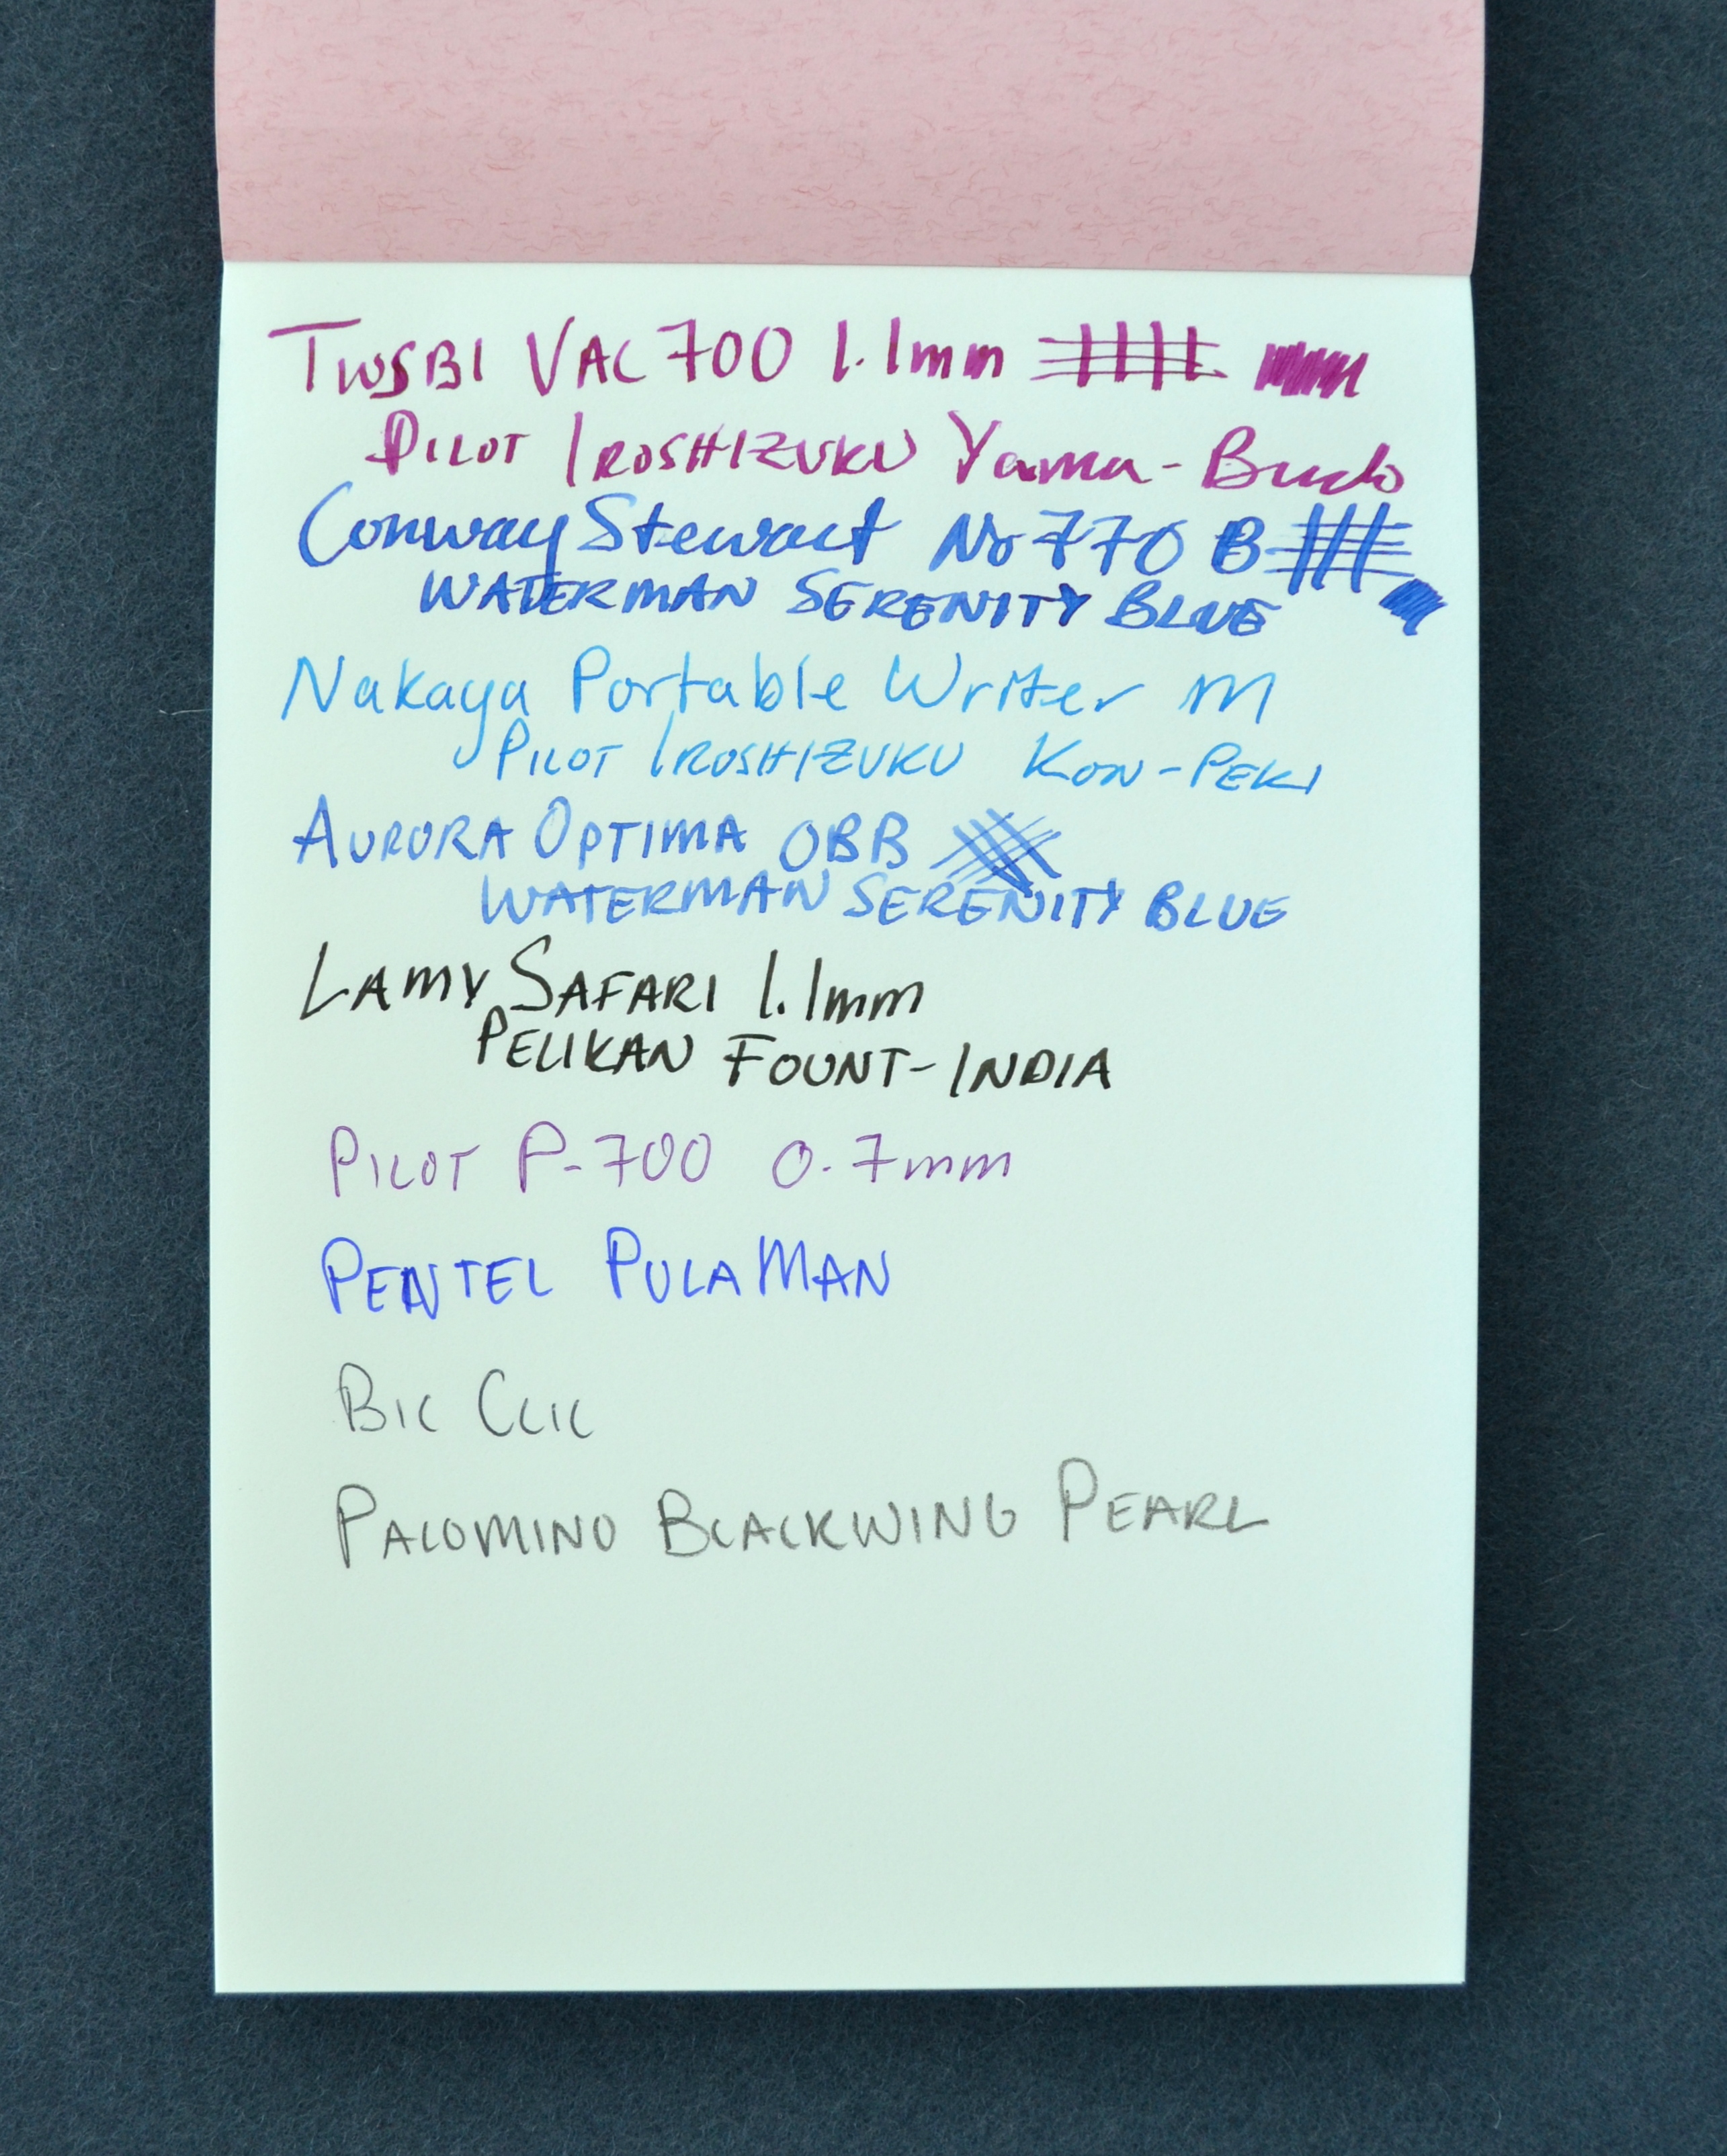 TWSBI VAC 700 1.1mm
PILOT IROSHIZUKU Yama-Budo
Conway Stewart No 770 B
WATERMAN SERENITY BLUE
Nakaya Portable Writer M
PILOT IROSHIZUKU KON-PEKI
AURORA OPTIMA OBB
WATERMAN SERENITY BLUE
LAMY SAFARI 1.1mm
PELIKAN FOUNT-INDIA
PILOT P-700 0.7mm
PENTEL PULAMAN
BIC CLIC
PALOMINO BLACKWING PEARL